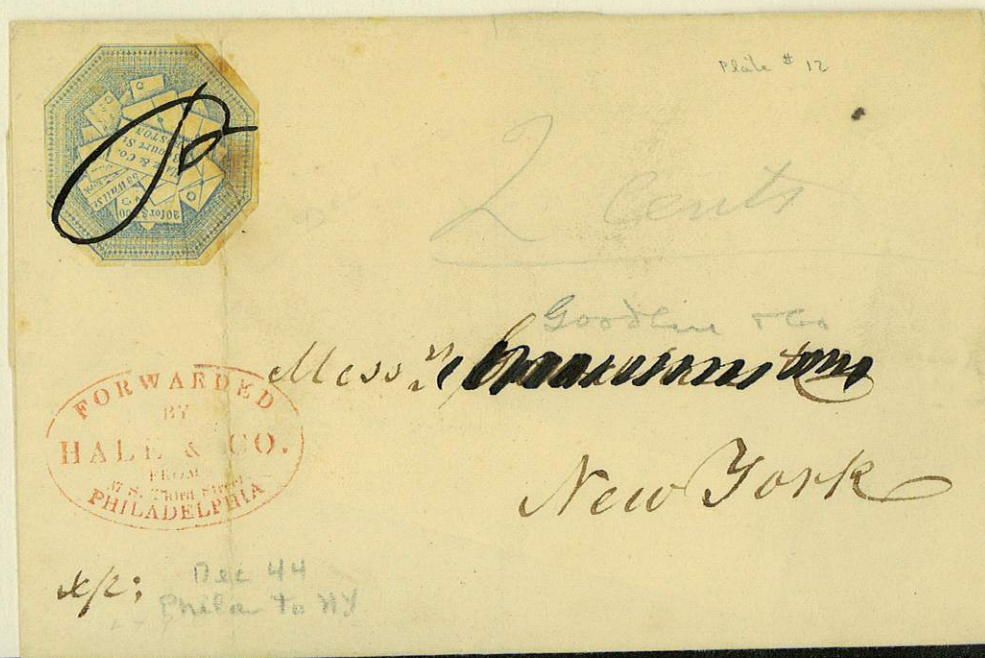 Plate # 12
& Co.
20 for $1.00
2 Cents
& Co
Mess.rs
New York
FORWARDED
BY
HALE & CO.
FROM
37 S. Third Street
PHILADELPHIA
Dec 44
Phila to NY